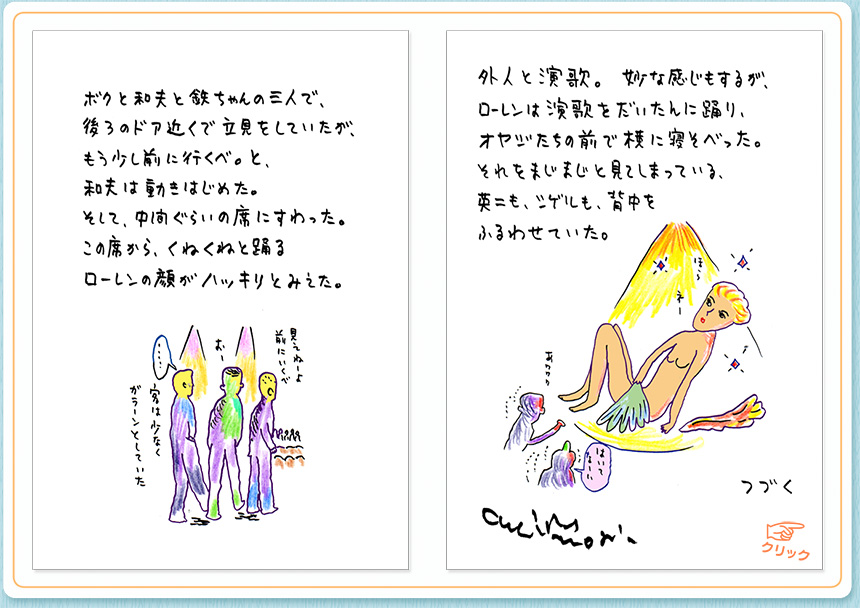 ボクと和夫と鉄ちゃんの三人で、
後ろのドア近くで立見をしていたが、
もう少し前に行くべ。と、
和夫は動きはじめた。
そして、中間ぐらいの席にすわった。
この席から、くねくねと踊る
ローレンの顔がハッキリとみえた。
見えねーよ
前にいくべ
おー
・・・・
客は少なく
ガラーンとしていた
外人と演歌。 妙な感じもするが、
ローレンは演歌をだいたんに踊り、
オヤジたちの前で横に寝そべった。
それをまじまじと見てしまっている、
英二も、シゲルも、背中を
ふるわせていた。
つづく
クリック